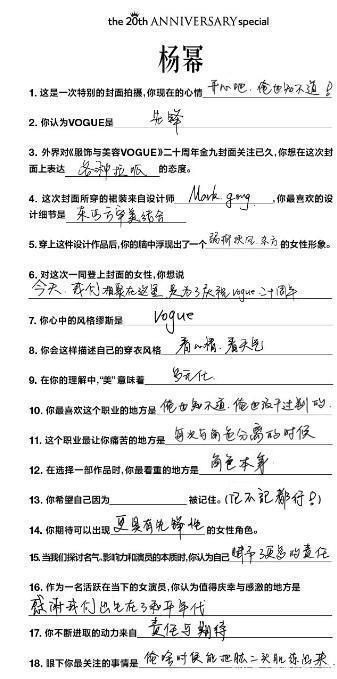 the 20th ANNIVERSARY special
杨幂
1. 这是一次特别的封面拍摄,你现在的心情 开心吧,俺也知不道!
2. 你认为VOGUE是 先锋
3. 外界对《服饰与美容VOGUE》二十周年金九封面关注已久,你想在这次封
面上表达 各种拉呱 的态度。
4. 这次封面所穿的裙装来自设计师 Mark gong ,你最喜欢的设
计细节是 东西方审美结合
5. 穿上这件设计作品后,你的脑中浮现出了一个 东方 的女性形象。
6. 对这次一同登上封面的女性,你想说
今天,我们相聚在这里,是为了庆祝vogue二十周年
7. 你心中的风格缪斯是 vogue
8. 你会这样描述自己的穿衣风格 看心情,看天气
9. 在你的理解中,“美”意味着 多元化
10. 你最喜欢这个职业的地方是 俺也知不道,俺也没干过别的.
11. 这个职业最让你痛苦的地方是 每次与角色分离的时候
12. 在选择一部作品时,你最看重的地方是 角色本身
13. 你希望自己因为 被记住。(记不记都行!)
14. 你期待可以出现 更具有先锋性 的女性角色。
15. 当我们探讨名气、影响力和演员的本质时,你认为自己 赋予了更多的责任
16. 作为一名活跃在当下的女演员,你认为值得庆幸与感激的地方是
感谢我们出生在了和平年代
17. 你不断进取的动力来自 责任与期待
18. 眼下你最关注的事情是 俺啥时候能把肱二头肌练出来